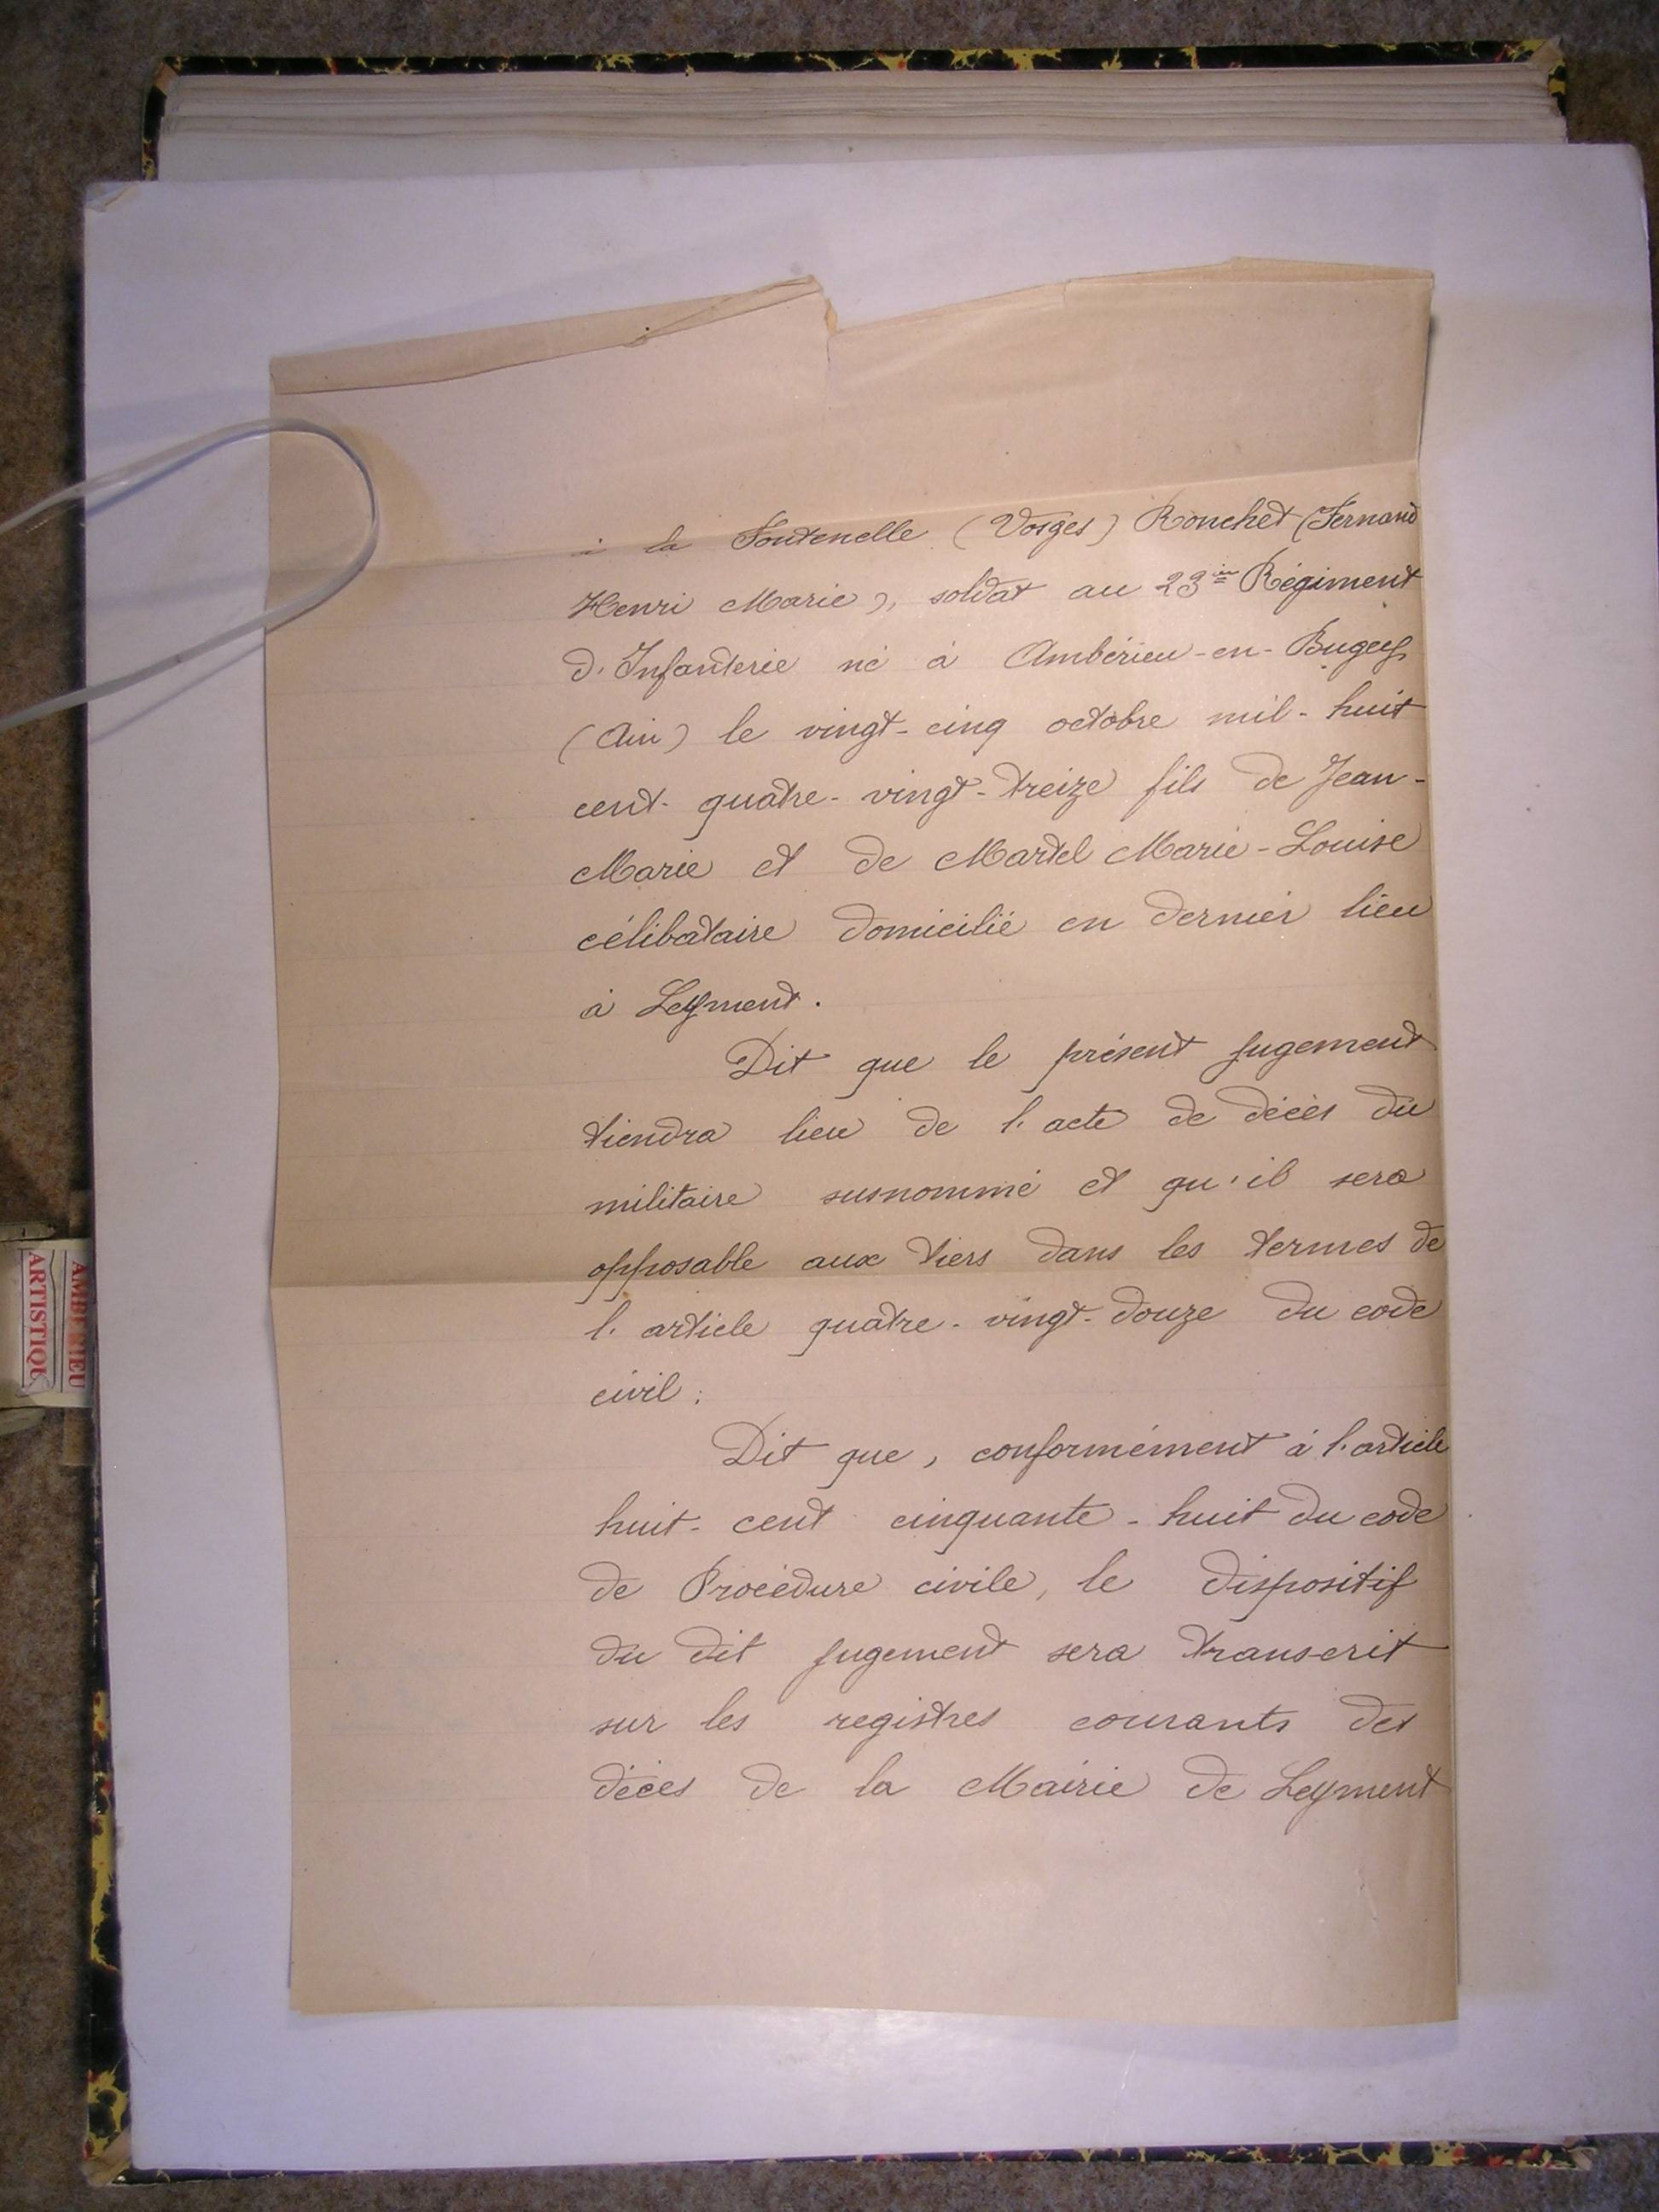 à la Fontenelle (Vosges) Ronchet (Fernand
Henri Marie), soldat au 23ème Régiment
d'Infanterie né à Ambérieu-en-Bugey
(Ain) le vingt-cinq octobre mil-huit
cent-quatre-vingt-treize fils de Jean-
Marie et de Martel Marie-Louise
célibataire domicilié en dernier lieu
à Leyment.
Dit que le présent jugement
tiendra lieu de l'acte de décès du
militaire susnommé et qu'il sera
opposable aux tiers dans les termes de
l'article quatre-vingt-douze du code
civil;
Dit que, conformément à l'article
huit-cent cinquante-huit du code
de Procédure civile, le dispositif
du dit jugement sera transcrit
sur les registres courants des
décès de la Mairie de Leyment
AMBERIEU
ARTISTIQUE